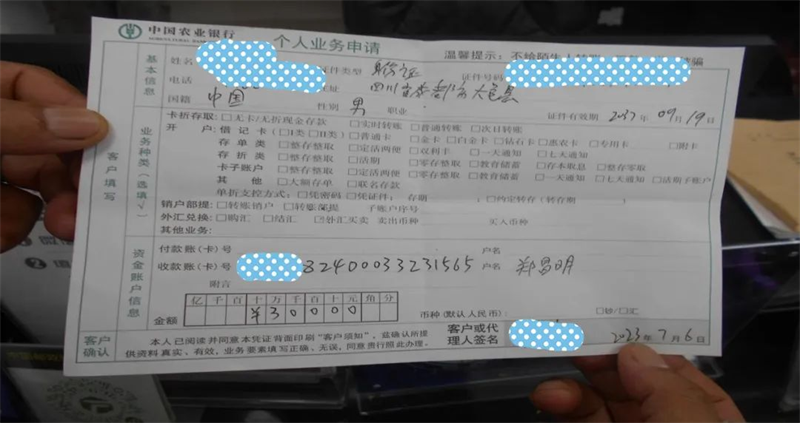 中国农业银行 个人业务申请
温馨提示：不给陌生人转
基本信息
姓名 证件类型 身份证 证件号码
电话 址 四川省 大邑县
国籍 中国 性别 男 职业 证件有效期 2037年09月19日
客户填写
业务种类（选填√）
卡折存取：□无卡/无折现金存款 □实时转账 □普通转账 □次日转账
开 户：借 记 卡（□I类 □II类）□普通卡 □金卡 □白金卡 □钻石卡 □惠农卡 □专用卡 □附卡
存 单 类 □整存整取 □定活两便 □双利卡 □一天通知 □七天通知
存 折 类 □整存整取 □活期 □零存整取 □教育储蓄 □存本取息 □整存零取
卡子账户 □整存整取 □定活两便 □零存整取 □教育储蓄 □一天通知 □七天通知 □活期子账户
其 他 □大额存单 □联名存款
单折支控方式：□凭密码 □凭证件； 存期 ；□约定转存（转存期 ）
销户部提：□转账销户 □转账部提 子账户序号
外汇兑换：□购汇 □结汇 □外汇买卖 卖出币种 买入币种
其他业务：
资金账户信息
付款账（卡）号 户名
收款账（卡）号 82400033231565 户名 郑昌明
附言
亿 千 百 十 万 千 百 十 元 角 分
金额 ¥30000 币种（默认人民币） □钞/□汇
客户确认
本人已阅读并同意本凭证背面印刷“客户须知”，兹确认所提
供资料真实、有效，业务要素填写正确、无误，同意贵行照此办理。
客户或代
理人签名
2023年7月6日